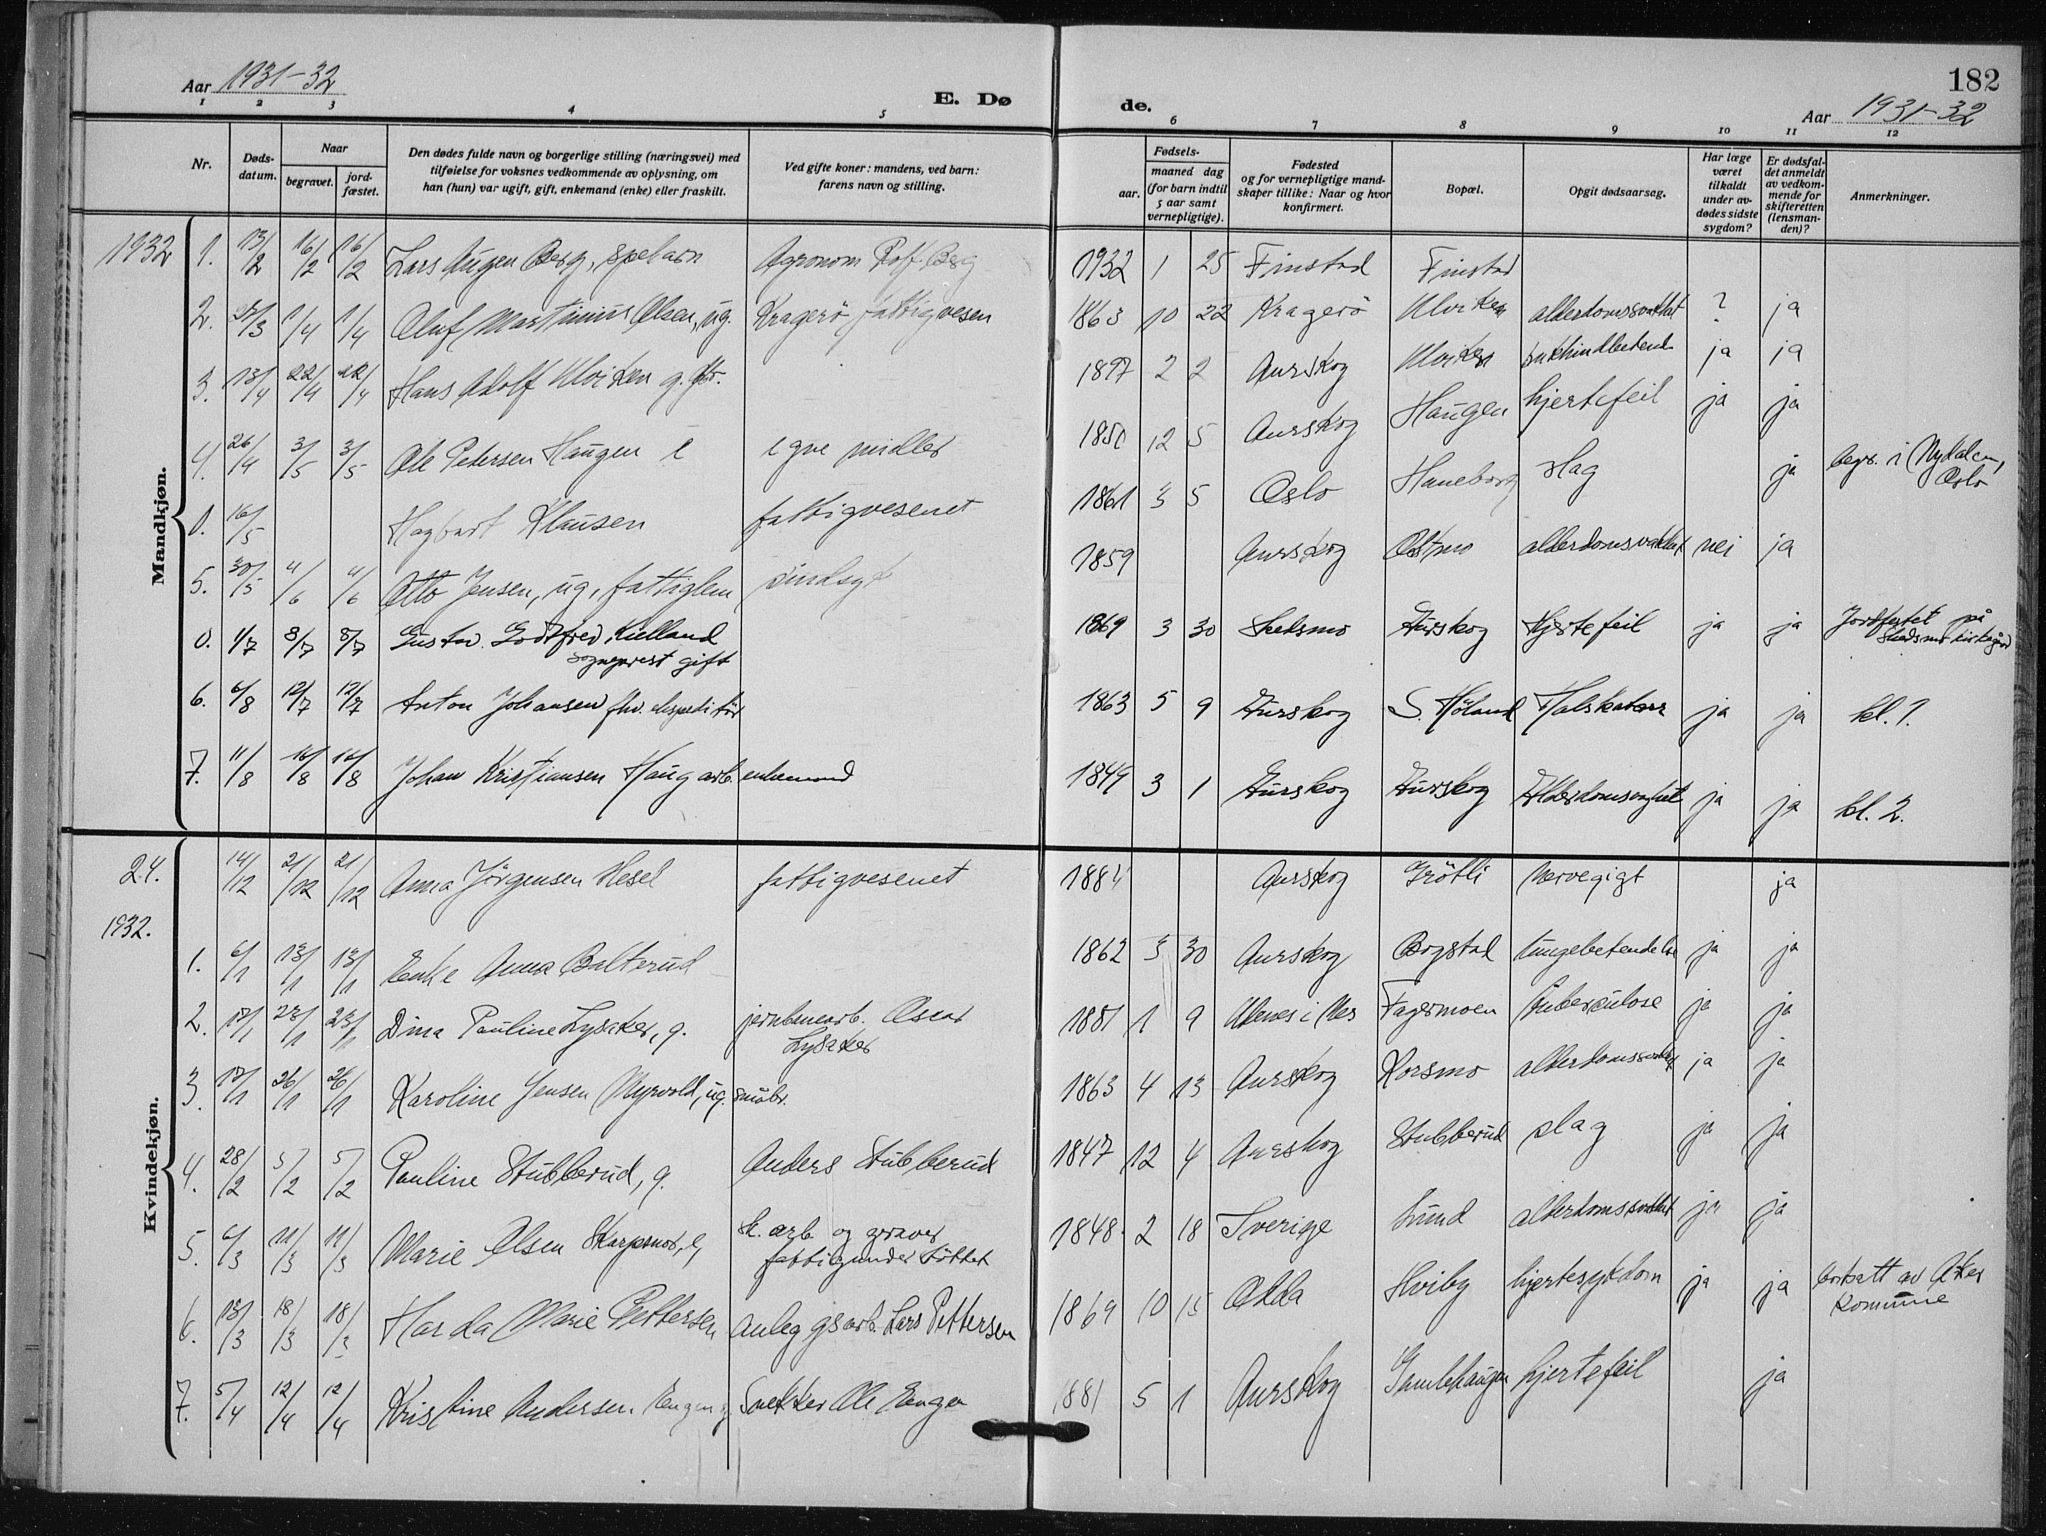 Aar 1931-32
E. Dø
de.
182
Aar 1931-32
1 2 3 4 5 6 7 8 9 10 11 12
Nr.
Døds-
datum.
Naar
begravet.
jord-
fæstet.
Den dødes fulde navn og borgerlige stilling (næringsvei) med
tilføielse for voksnes vedkommende av oplysning, om
han (hun) var ugift, gift, enkemand (enke) eller fraskilt.
Ved gifte koner: mandens, ved barn:
farens navn og stilling.
Fødsels-
aar.
maaned dag
(for barn indtil
5 aar samt
vernepligtige).
Fødested
og for vernepligtige mand-
skaper tillike: Naar og hvor
konfirmert.
Bopæl.
Opgit dødsaarsag.
Har læge
været
tilkaldt
under av-
dødes sidste
sygdom?
Er dødsfal-
det anmeldt
av vedkom-
mende for
skifteretten
(lensman-
den)?
Anmerkninger.
Mandkjøn.
1932 1. 13/2 16/2 16/2 Lars Augen Berg, spebarn Agronom Rolf Berg 1932 1 25 Finstad Finstad
2. 1/4 1/4 Oluf Martinius Olsen, ug. Kragerö fattigvesen 1863 10 22 Kragerö Ulviken alderdomssvakhet ? ja
3. 13/4 22/4 22/4 Hans Adolf Ulviken g. 1897 2 2 Aurskog Ulviken ja ja
4. 26/4 3/5 3/5 Ole Petersen Haugen e egne midler 1850 12 5 Aurskog Haugen hjertefeil ja ja
0. 16/5 Hagbart Klausen fattigvesenet 1861 3 5 Oslo Haneborg slag ja begr. i Nydalen,
Oslo
5. 30/5 4/6 4/6 Otto Jensen, ug, fattiglem sindsyk 1859 Aurskog Østmo alderdomssvakhet nei ja
0. 1/7 8/7 8/7 Gustav Godtfred Kielland
sogneprest gift 1869 3 30 Skedsmo Aurskog Hjertefeil ja ja Jordfestet på
Skedsmo kirkegård
6. 6/8 12/7 12/7 Anton Johansen fhv. ekspeditör 1863 5 9 Aurskog S. Høland Halskatarr ja ja kl. 1.
7. 11/8 16/8 16/8 Johan Kristiansen Haug arb. enkemand 1849 3 1 Aurskog Aurskog Alderdomssvakhet ja ja kl. 2.
Kvindekjøn.
24. 14/12 21/12 21/12 Anna Jørgensen Hesel fattigvesenet 1884 Aurskog Grötli Nervegigt ja
1932.
1. 6/1 13/1 13/1 Enke Anna Balterud 1862 3 30 Aurskog Bogstad lungebetendelse ja ja
2. 17/1 23/1 23/1 Dina Pauline Lysaker, g. jernbanearb. Oscar
Lysaker 1881 1 9 Aarnes i Nes Fagermoen Tuberculose ja ja
3. 17/1 26/1 26/1 Karoline Jensen Myrvold, ug. småbr. 1863 4 13 Aurskog Korsmo alderdomssvakhet ja ja
4. 28/2 5/2 5/2 Pauline Stubberud, g. Anders Stubberud 1847 12 4 Aurskog Stubberud slag ja ja
5. 6/3 11/3 11/3 Marie Olsen Skarpsno, e, sk. arb og graver
fattigunderstöttet 1848 2 18 Sverige Lund alderdomssvakhet ja ja
6. 13/3 18/3 18/3 Harda Marie Pettersen Anleggsarb. Lars Pettersen 1869 10 15 Odda Hviby hjertesykdom ja ja bortsatt av Aker
Kommune
7. 5/4 12/4 12/4 Kristine Andersen Engen g Snekker Ole Engen 1881 5 1 Aurskog Gamlehaugen hjertefeil ja